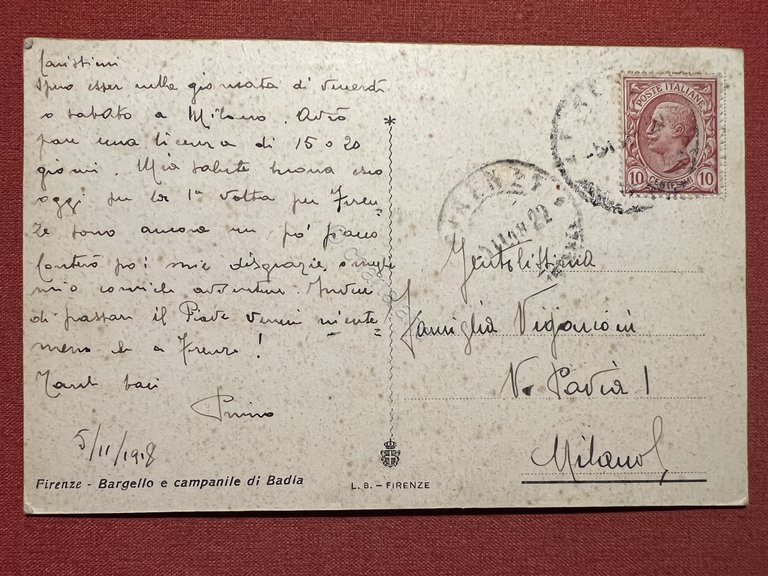 Carissimi
spero esser nella giornata di venerdì
o sabato a Milano. Avrò
pare una licenza di 15 o 20
giorni. Mia salute buona esco
oggi per la 1ª volta per Firen-
ze sono ancora un po' fiacco
Conterò poi mie disgrazie, o meglio
mio comiche avventure. Invece
di passare il Piave venni niente
meno che a Firenze!
Tanti baci
Pinino
5/11/1918
Firenze - Bargello e campanile di Badia
L. B. - FIRENZE
POSTE ITALIANE
10 CENTESIMI 10
FIRENZE
22
Gentilissima
Famiglia Viganoni
V. Pavia 1
Milano